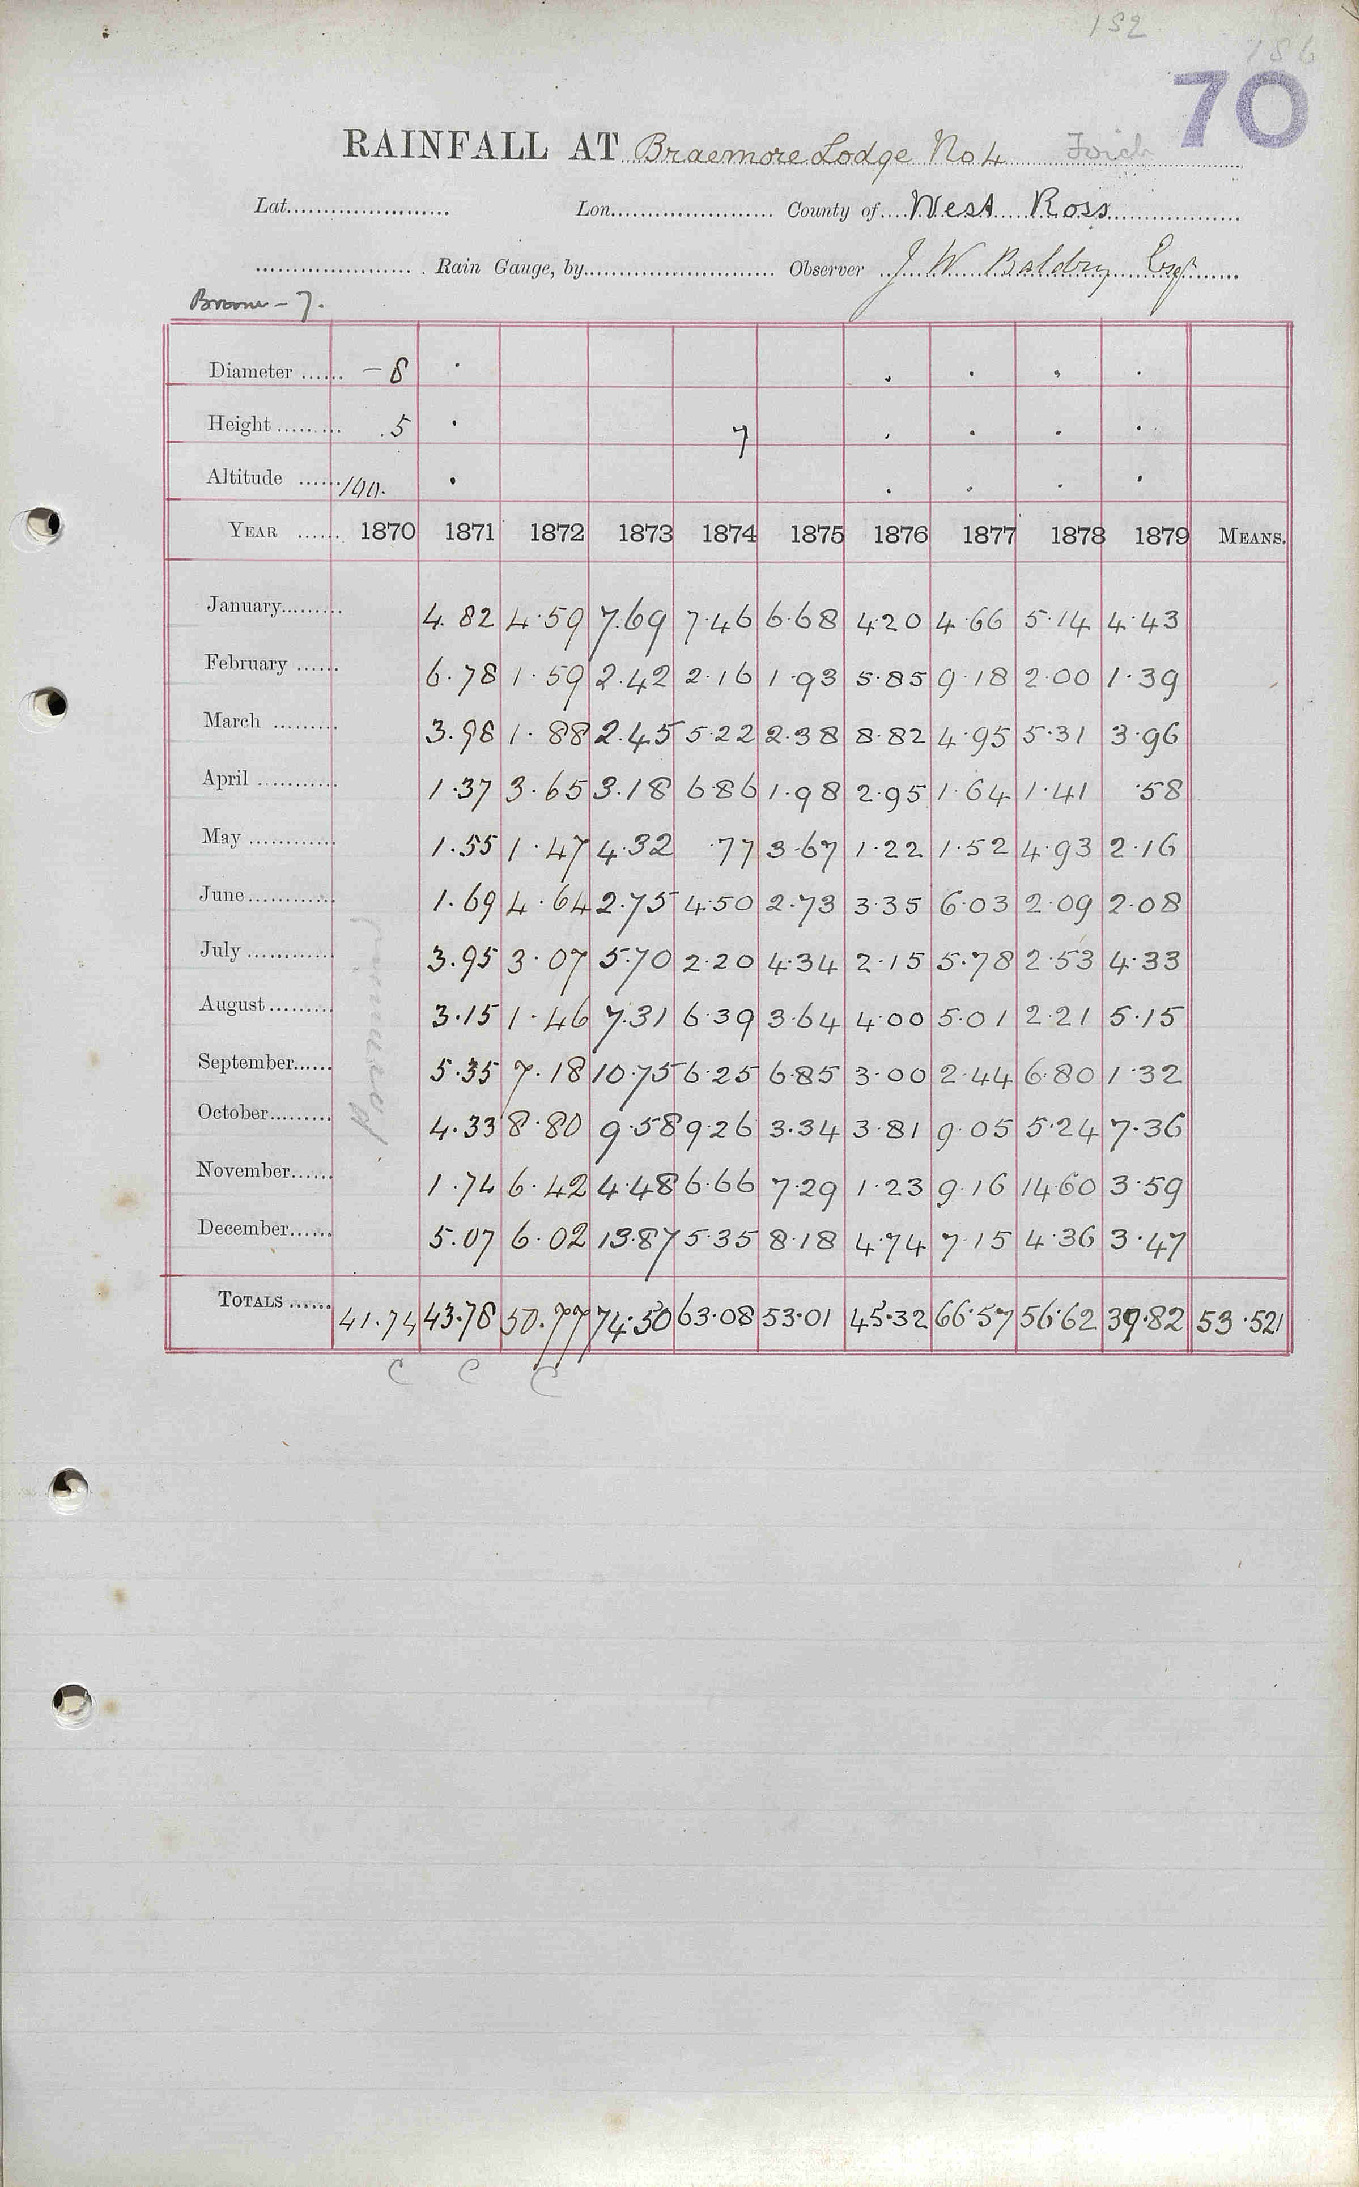 182
186
70
RAINFALL AT Braemore Lodge No 4
Lat. Lon. County of West Ross
Rain Gauge, by Observer J. W. Baldry Esq.
Broom - 7.
Diameter - 8
Height .5 7
Altitude
YEAR 1870 1871 1872 1873 1874 1875 1876 1877 1878 1879 MEANS.
January 4.82 4.59 7.69 7.46 6.68 4.20 4.66 5.14 4.43
February 6.78 1.59 2.42 2.16 1.93 5.85 9.18 2.00 1.39
March 3.98 1.88 2.45 5.22 2.38 8.82 4.95 5.31 3.96
April 1.37 3.65 3.18 6.86 1.98 2.95 1.64 1.41 .58
May 1.55 1.47 4.32 .77 3.67 1.22 1.52 4.93 2.16
June 1.69 4.64 2.75 4.50 2.73 3.35 6.03 2.09 2.08
July 3.95 3.07 5.70 2.20 4.34 2.15 5.78 2.53 4.33
August 3.15 1.46 7.31 6.39 3.64 4.00 5.01 2.21 5.15
September 5.35 7.18 10.75 6.25 6.85 3.00 2.44 6.80 1.32
October 4.33 8.80 9.58 9.26 3.34 3.81 9.05 5.24 7.36
November 1.74 6.42 4.48 6.66 7.29 1.23 9.16 14.60 3.59
December 5.07 6.02 13.87 5.35 8.18 4.74 7.15 4.36 3.47
TOTALS 41.74 43.78 50.77 74.50 63.08 53.01 45.32 66.57 56.62 39.82 53.521
C C C